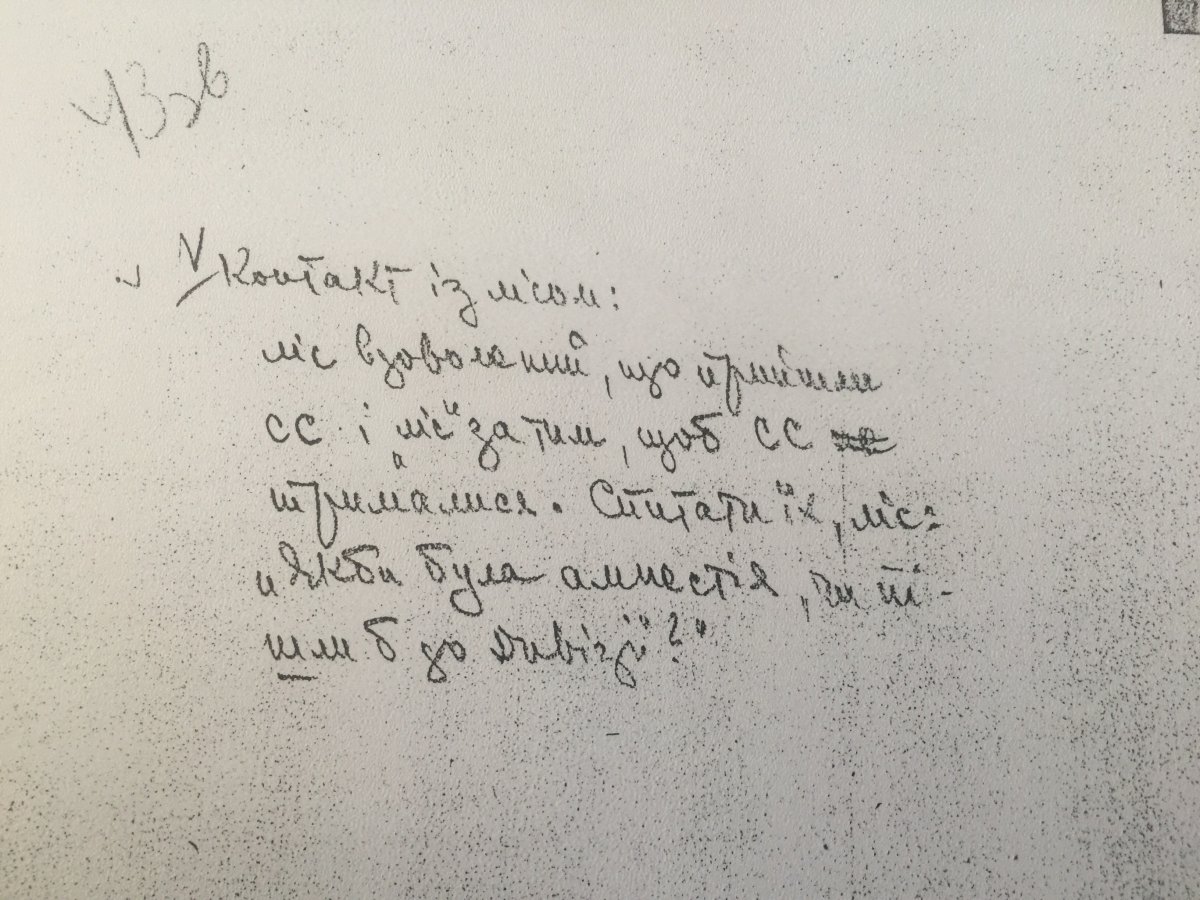 Контакт із лісом:
ліс вдоволений, що прийшли
СС і „ліс" за тим, щоб СС
трималися. Спитати їх, ліс:
„Якби була амнестія, чи пі-
шли б до Дивізії?"